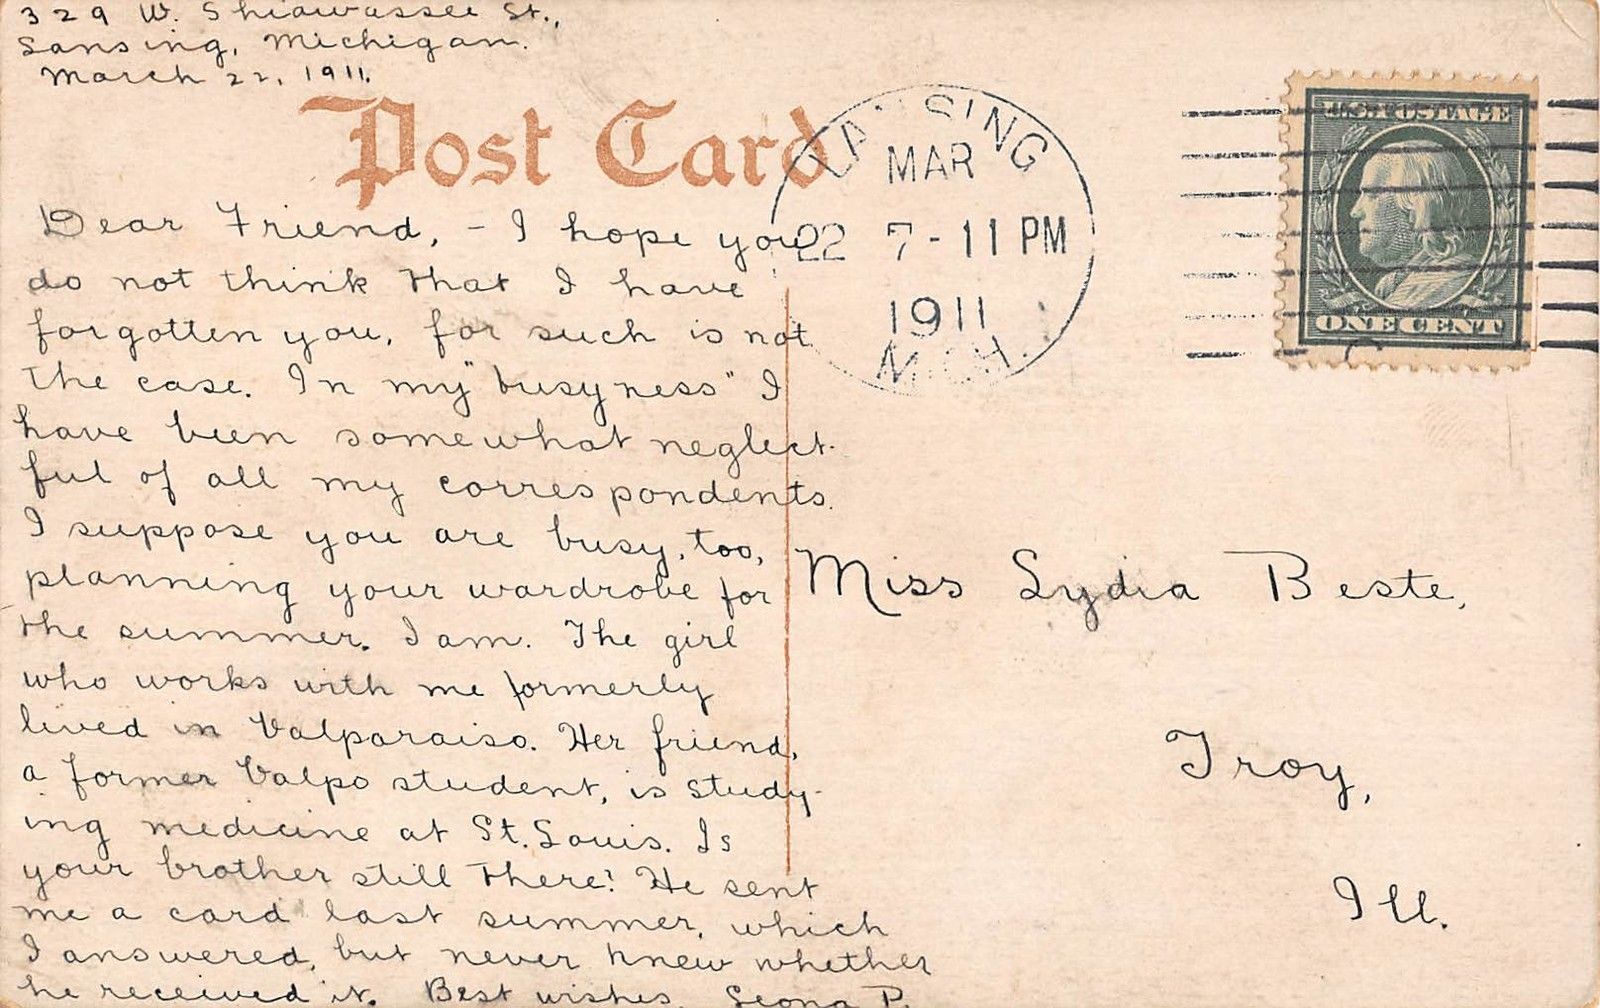 329 W. Shiawassee St.,
Lansing, Michigan.
March 22, 1911.
Post Card
LANSING
MAR
22 7-11 PM
1911
MICH.
U.S. POSTAGE
ONE CENT
Dear Friend, - I hope you
do not think that I have
forgotten you, for such is not
the case. In my "busyness" I
have been somewhat neglect-
ful of all my correspondents.
I suppose you are busy, too,
planning your wardrobe for
the summer. I am. The girl
who works with me formerly
lived in Valparaiso. Her friend,
a former Valpo student, is study-
ing medicine at St. Louis. Is
your brother still there? He sent
me a card last summer, which
I answered, but never knew whether
he received it. Best wishes, Leona P.
Miss Lydia Beste,
Troy,
Ill.